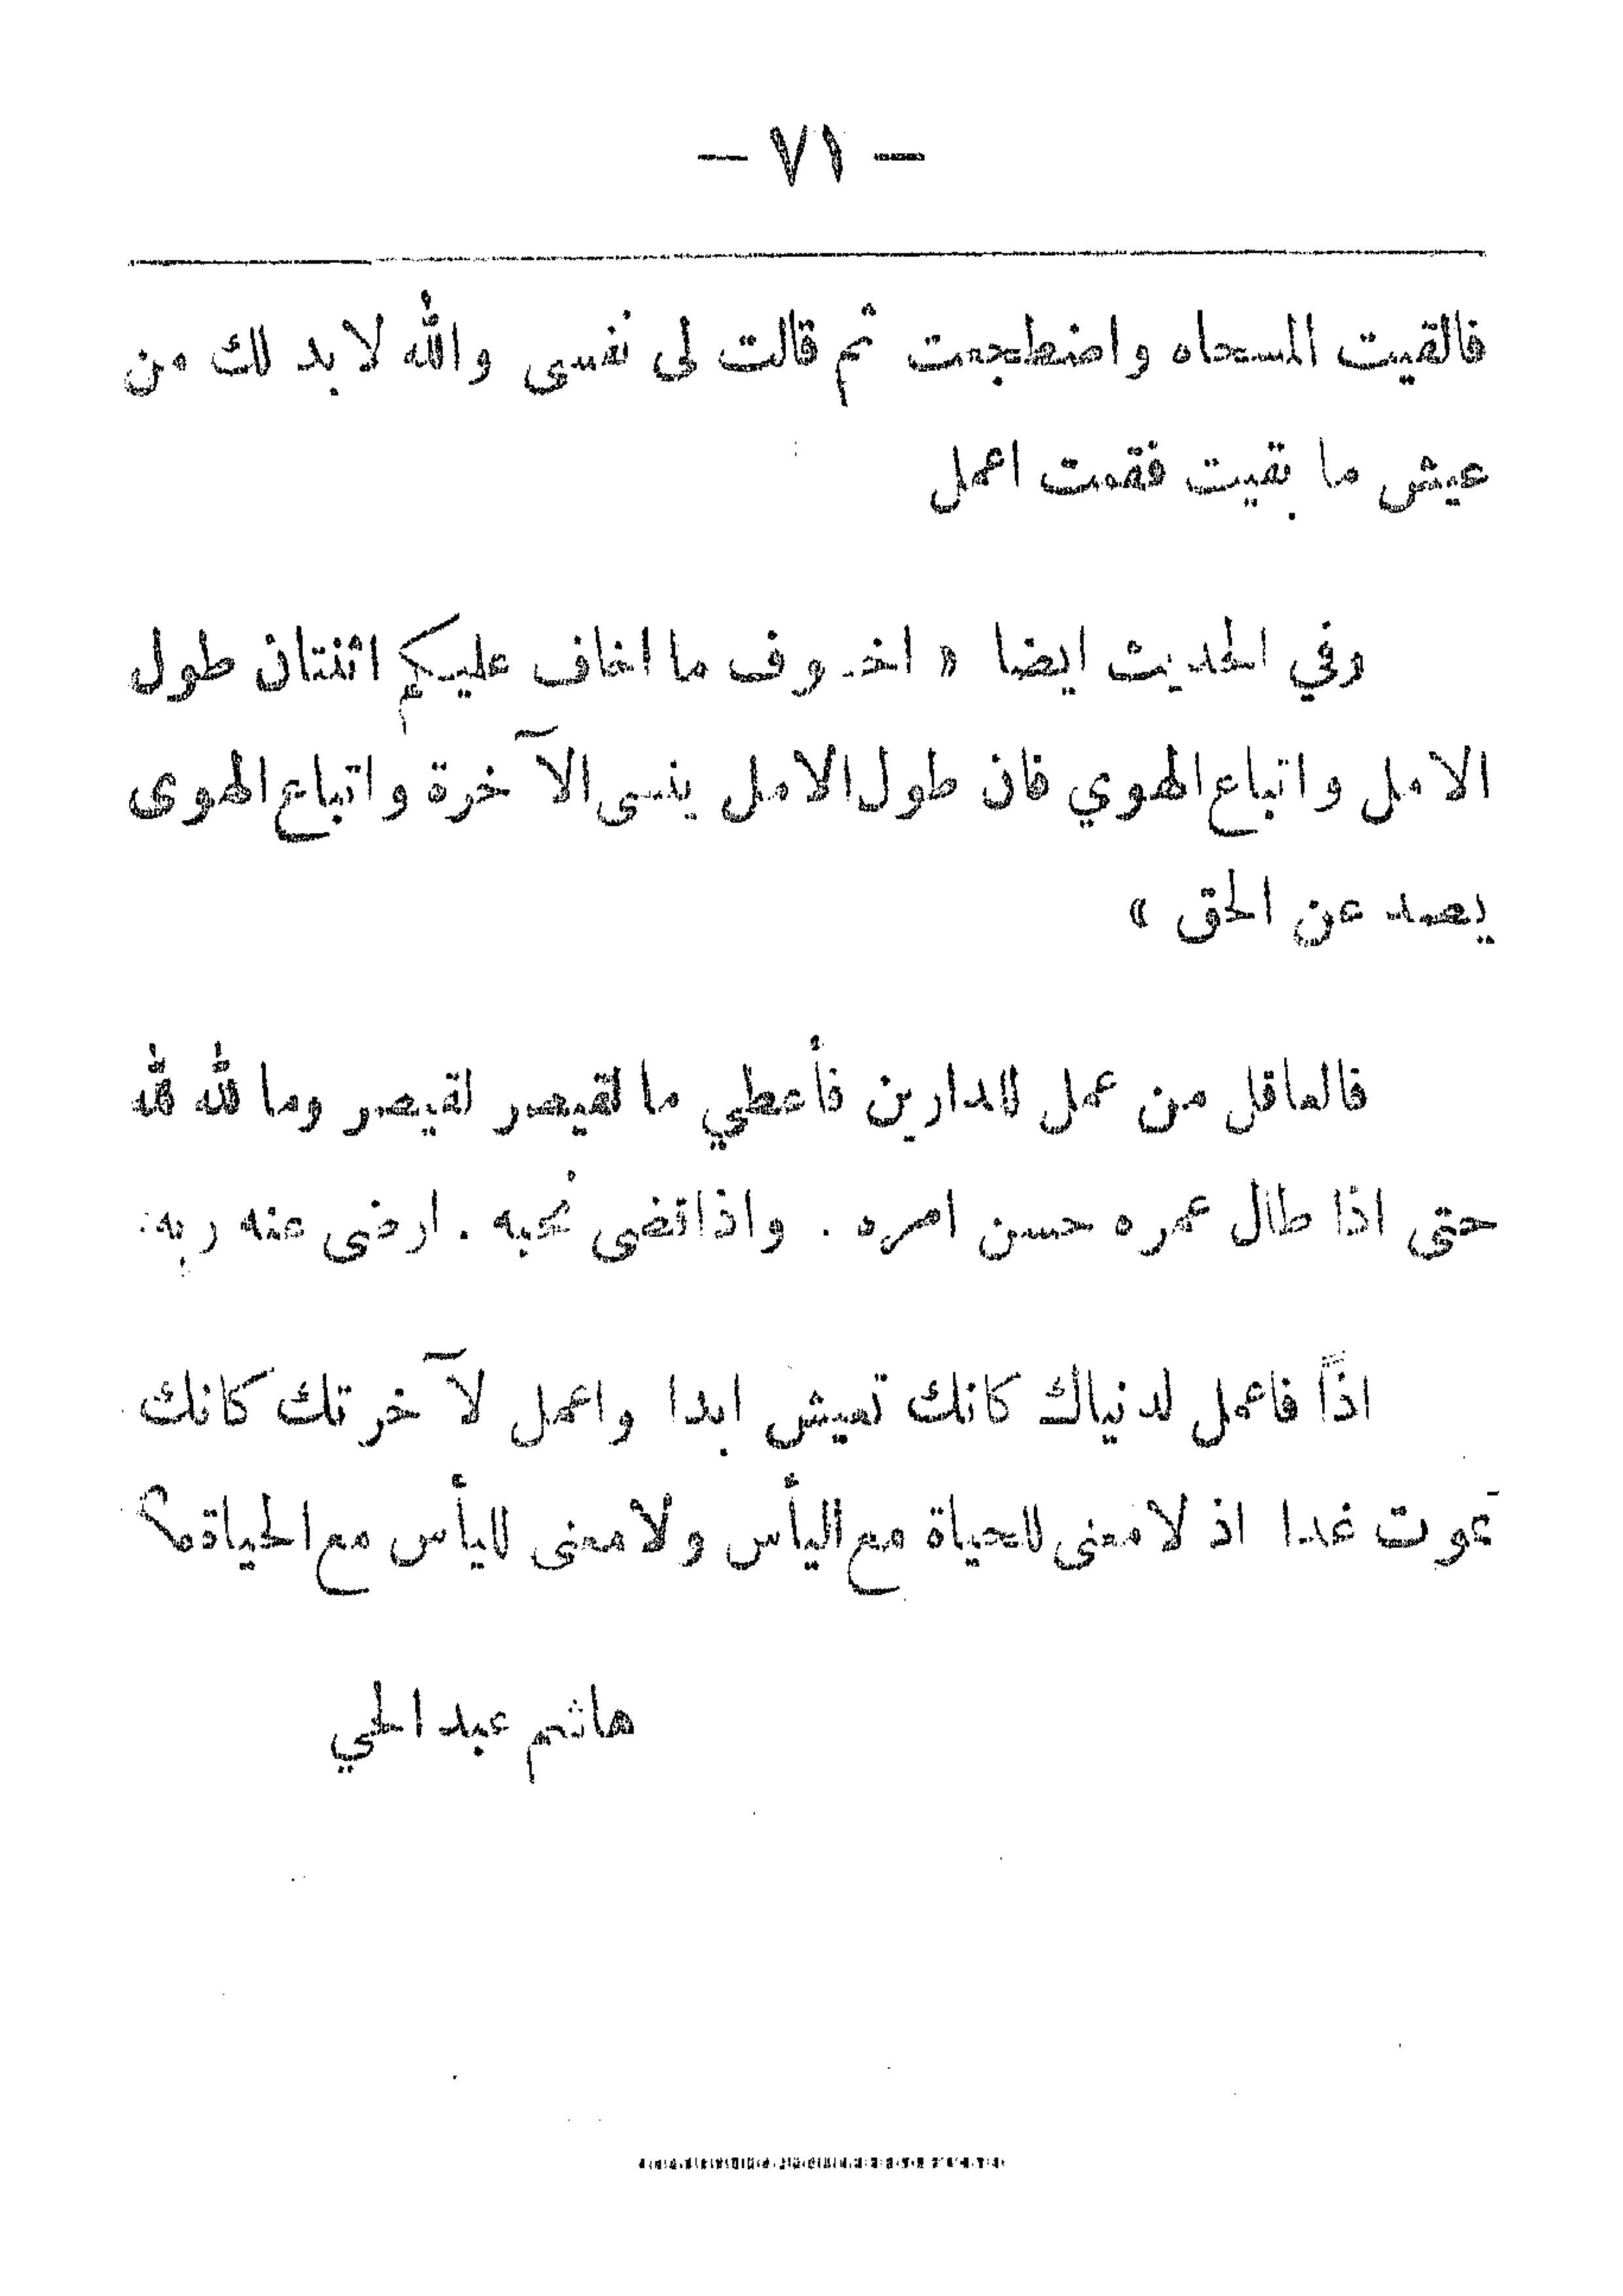 — ٧١ —
فالقيت المسحاه واضطجعت ثم قالت لى نفسى والله لا بد لك من
عيش ما بقيت فقمت اعمل
وفي الحديث ايضا « اخوف ما اخاف عليكم اثنتان طول
الامل واتباع الهوي فان طول الامل ينسى الآخرة واتباع الهوى
يصد عن الحق »
فالعاقل من عمل للدارين فأعطي ما لقيصر لقيصر وما لله لله
حتى اذا طال عمره حسن امره . واذا قضى نحبه . ارضى عنه ربه.
اذاً فاعمل لدنياك كانك تعيش ابدا واعمل لآخرتك كانك
تموت غدا اذ لا معنى للحياة مع اليأس ولا معنى لليأس مع الحياة م؟
هاشم عبد الحي